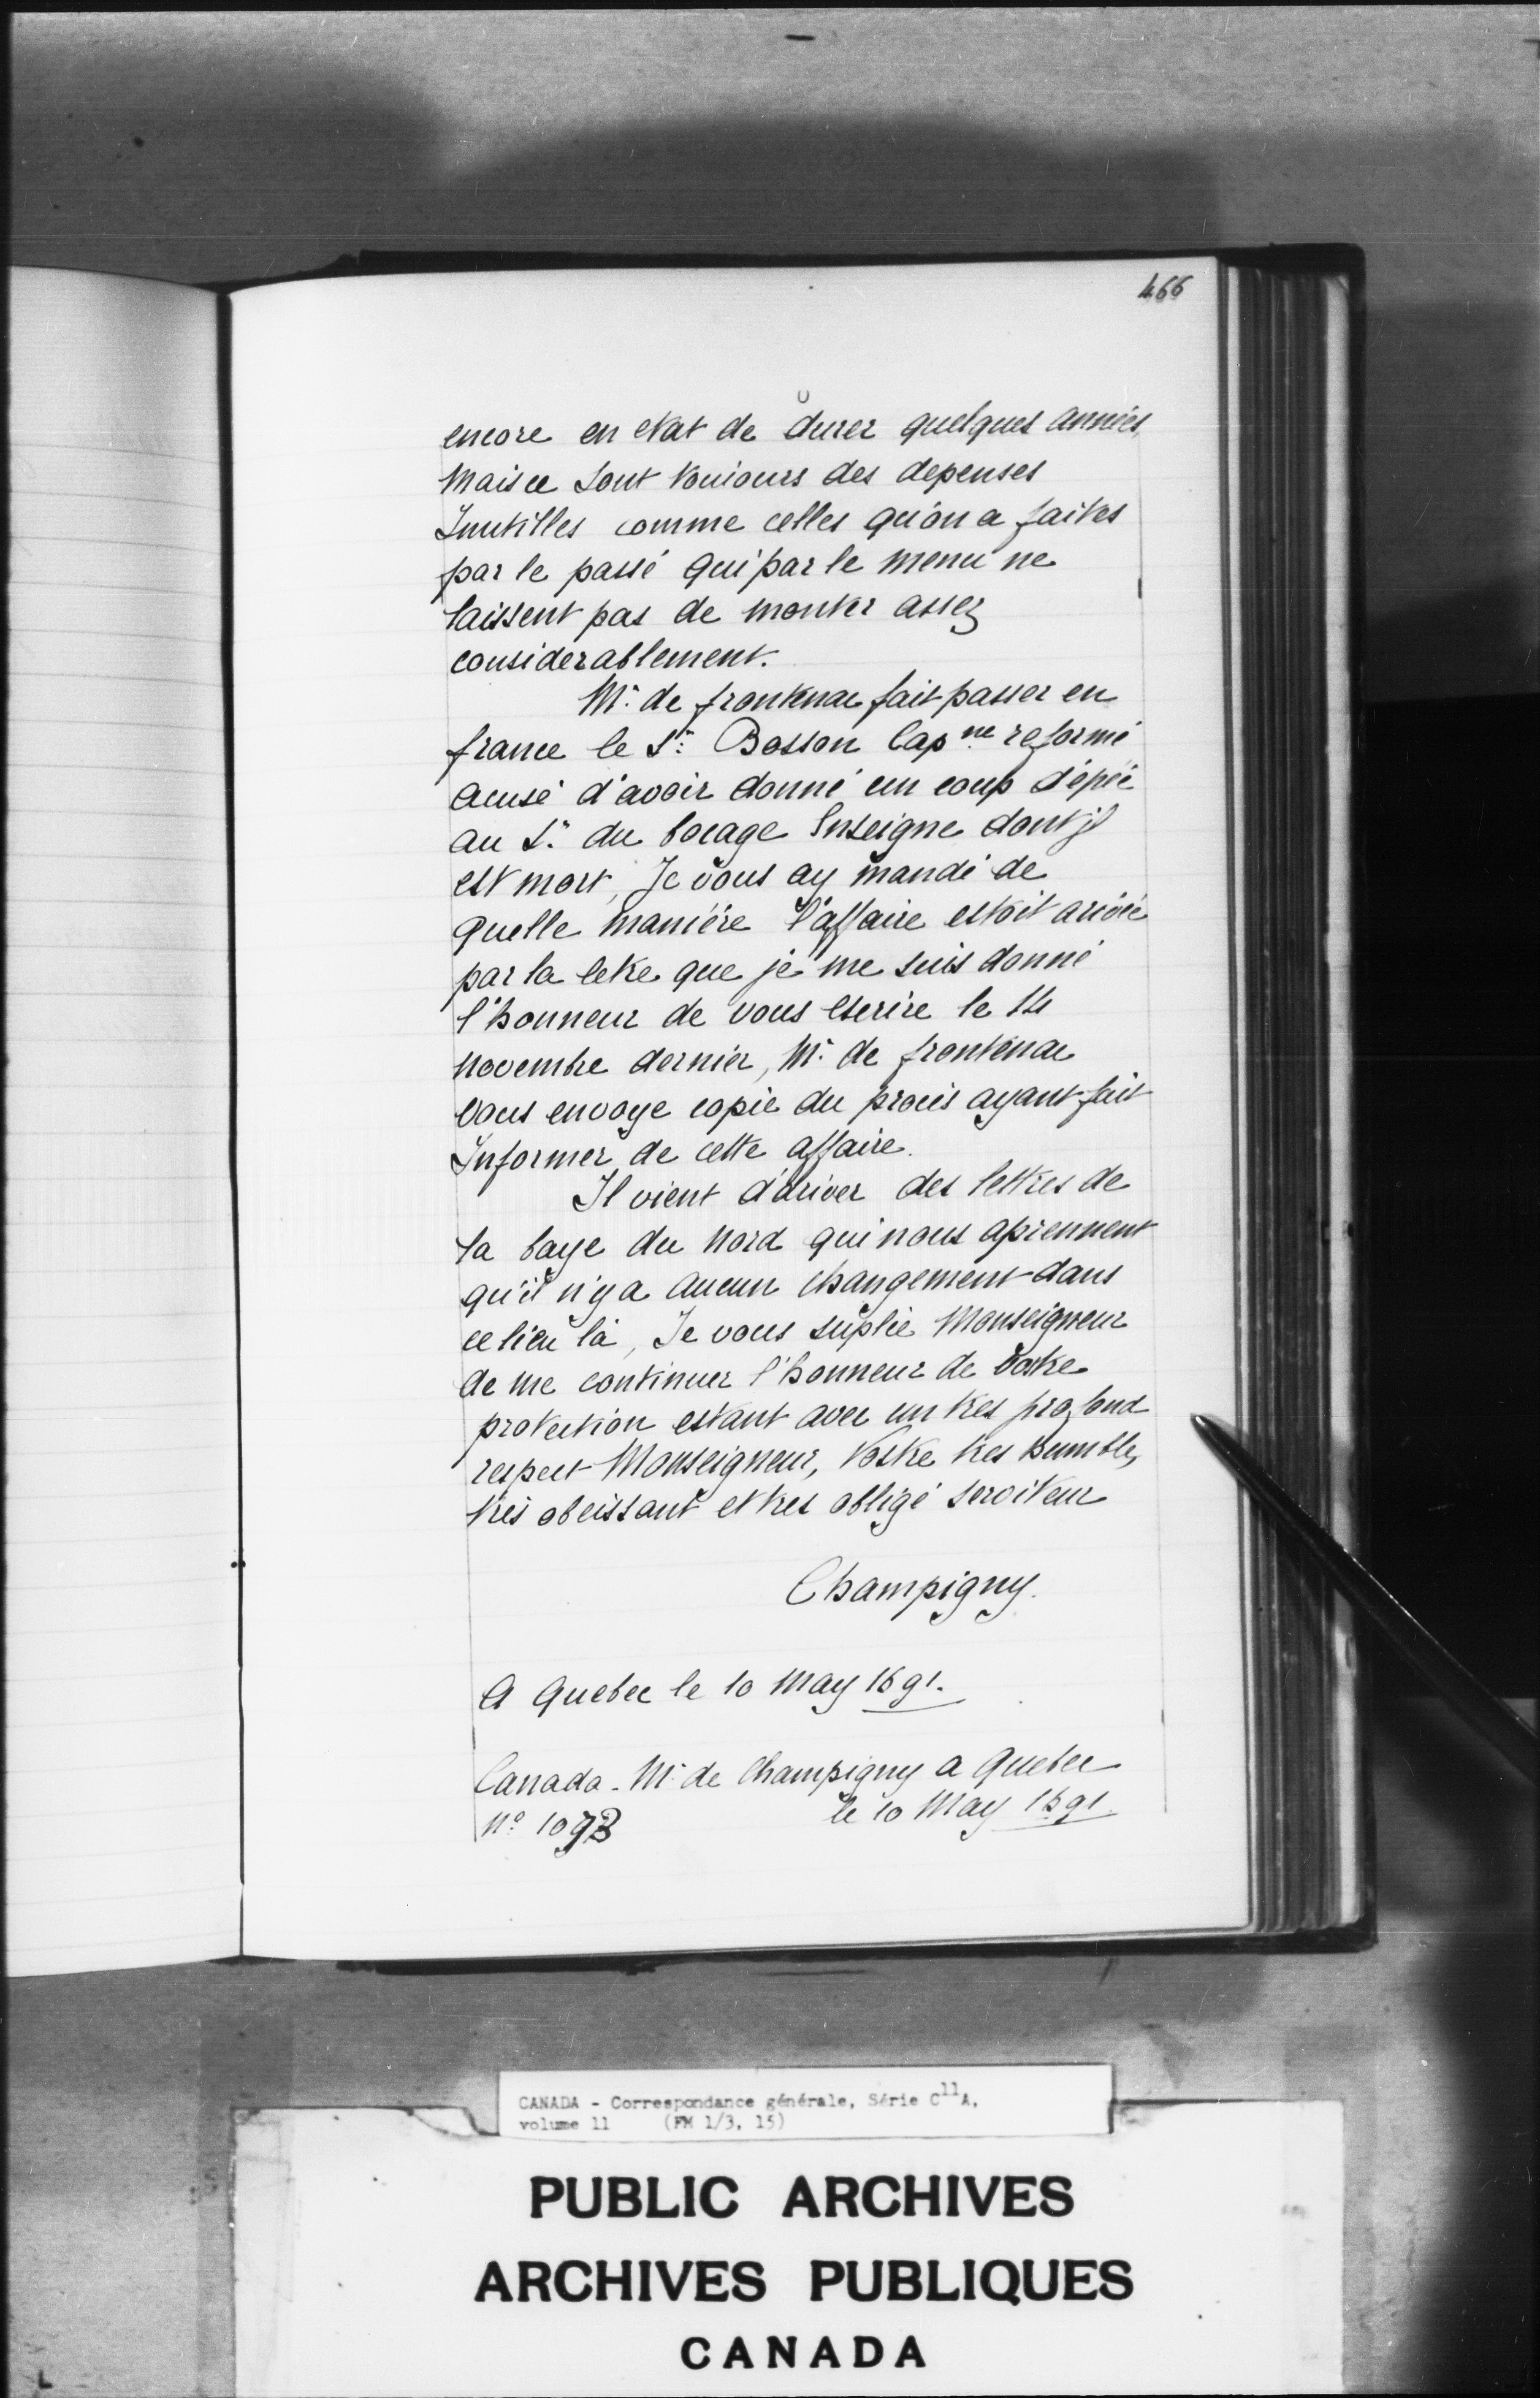 466
encore en etat de durer quelques années,
Mais ce sont touiours des depenses
Inutilles comme celles qu'on a faites
par le passé qui par le menu ne
laissent pas de monter assez
considerablement.
Mr. de frontenac fait passer en
france le Sr. Bosson Capne reformé
acusé d'avoir donné un coup d'épée
au Sr. du bocage Enseigne dont il
est mort, Je vous ay mandé de
quelle maniére l'affaire estoit arivée
par la letre que je me suis donné
l'honneur de vous escrire le 14
novembre dernier, Mr. de frontenac
vous envoye copie du procès ayant fait
Informer de cette affaire.
Il vient d'ariver des lettres de
la baye du Nord qui nous aprennent
qu'il n'y a aucun changement dans
ce lieu là, Je vous suplie Monseigneur
de me continuer l'honneur de votre
protection estant avec un tres profond
respect Monseigneur, Vostre tres humble,
très obeissant et tres obligé serviteur
Champigny.
A Quebec le 10 May 1691.
Canada - Mr. de Champigny a Quebec
le 10 May 1691.
No. 1093
CANADA - Correspondance générale, Série C11A,
volume 11 (FM 1/3, 15)
PUBLIC ARCHIVES
ARCHIVES PUBLIQUES
CANADA